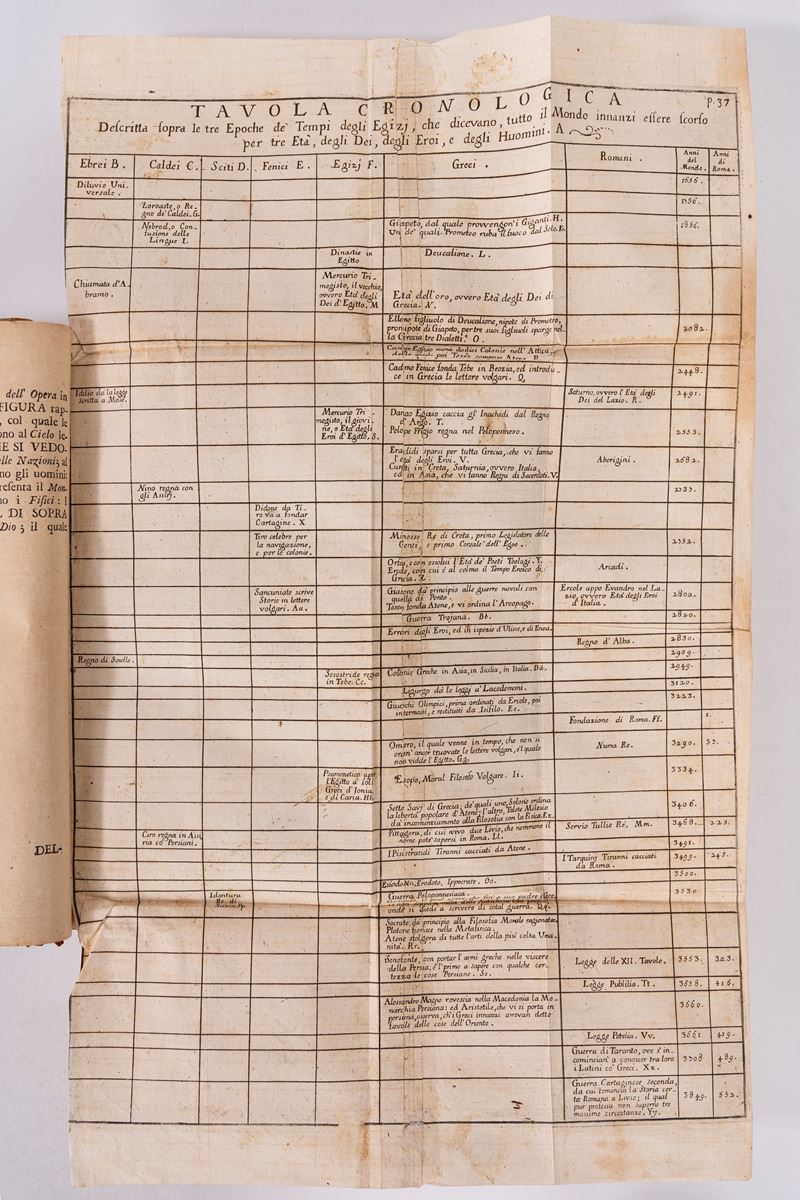 TAVOLA CRONOLOGICA
P. 37
Descritta sopra le tre Epoche de' Tempi degli Egizj, che dicevano, tutto il Mondo innanzi essere scorso
per tre Età, degli Dei, degli Eroi, e degli Huomini. A
Ebrei B. Caldei C. Sciti D. Fenici E. Egizj F. Greci. Romani.
Anni
del
Mondo.
Anni
di
Roma.
Diluvio Uni-
versale.
1656.
Zoroaste, o Re-
gno de' Caldei. G.
1756.
Nebrod, o Con-
fusione delle
Lingue I.
Giapeto, dal quale provvengon' i Giganti. H.
Un de' quali Prometeo ruba il fuoco dal Sole. K.
1856.
Dinastie in
Egitto
Deucalione. L.
Chiamata d'A-
bramo.
Mercurio Tri-
megisto, il vecchio,
ovvero Età degli
Dei d'Egitto. M
Età dell'oro, ovvero Età degli Dei di
Grecia. N.
Elleno figliuolo di Deucalione, nipote di Prometeo,
pronipote di Giapeto, per tre suoi figliuoli sparge nel-
la Grecia tre Dialetti. O.
2082.
Cecrope Egizio mena dodici Colonie nell'Attica,
Cadmo Fenice fonda Tebe in Beozia, ed introdu-
ce in Grecia le lettere volgari. Q.
2448.
Iddio dà la legge
scritta a Mosè.
Saturno, ovvero l'Età degli
Dei del Lazio. R.
2491.
Mercurio Tri-
megisto, il giovi-
ne, o Età degli
Eroi d'Egitto. S.
Danao Egizio caccia gl' Inachidi dal Regno
d' Argo. T.
Pelope Frigio regna nel Peloponneso.
2553.
Eraclidi sparsi per tutta Grecia, che vi fanno
l'età degli Eroi. V.
Cureti in Creta, Saturnia, ovvero Italia,
ed in Asia, che vi fanno Regni di Sacerdoti. V.
Aborigini.
2682.
Nino regna con
gli Assirj.
Didone da Ti-
ro va a fondar
Cartagine. X
Tiro celebre per
la navigazione,
e per le colonie.
Minosse Re di Creta, primo Legislatore delle
Genti, e primo Corsale dell' Egeo.
Orfeo, e con essolui l'Età de' Poeti Teologi. Y.
Ercole, con cui è al colmo il Tempo Eroico di
Grecia. Z.
Arcadi.
Sancuniate scrive
Storie in lettere
volgari. Aa.
Giasone dà principio alle guerre navali con
quella di Ponto.
Teseo fonda Atene, e vi ordina l'Areopago.
Ercole appo Evandro nel La-
zio, ovvero Età degli Eroi
d'Italia.
2800.
Guerra Trojana. Bb.
2820.
Errori degli Eroi, ed in ispezie d'Ulisse, e di Enea.
Regno d' Alba.
2830.
Regno di Saulle.
2909.
Sesostride regna
in Tebe. Cc.
Colonie Greche in Asia, in Sicilia, in Italia. Dd.
2949.
Ligurgo dà le leggi a' Lacedemoni.
3120.
Giuochi Olimpici, prima ordinati da Ercole, poi
intermessi, e restituiti da Isifilo. Ee.
3223.
Fondazione di Roma. Ff.
1.
Omero, il quale venne in tempo, che non si
eran' ancor truovate le lettere volgari, e 'l quale
non vidde l'Egitto. Gg.
Numa Re.
3290. 33.
Psammetico apre
l'Egitto a' soli
Greci d'Jonia,
e di Caria. Hh.
Esopo, Moral Filosofo Volgare. Ii.
3334.
Sette Savj di Grecia; de' quali uno, Solone ordina
la libertà popolare d'Atene; l'altro, Talete Milesio
dà incominciamento alla Filosofia con la Fisica. Kk.
3406.
Pittagora, di cui vivo dice Livio, che nemmeno il
nome potè sapersi in Roma. Ll.
Servio Tullio Rè. Mm.
3468. 225.
Ciro regna in Assi-
ria co' Persiani.
I Pisistratidi Tiranni cacciati da Atene.
3491.
I Tarquinj Tiranni cacciati
da Roma.
3499. 245.
Esiodo Nn, Erodoto, Ippocrate. Oo.
3500.
Idantura
Re di
Guerra Peloponnesiaca.
onde si diede a scrivere di cotal guerra. Qq.
3530
Socrate dà principio alla Filosofia Morale ragionata.
Platone fiorisce nella Metafisica.
Atene sfolgora di tutte l'arti della più colta Uma-
nità. Rr.
Senofonte, con portar l'armi greche nelle viscere
della Persia, è 'l primo a sapere con qualche cer-
tezza le cose Persiane. Ss.
Legge delle XII. Tavole.
3553. 303.
Legge Publilia. Tt.
3658. 416.
Alessandro Magno rovescia nella Macedonia la Mo-
narchia Persiana: ed Aristotile, che vi si porta in
persona, osserva, ch' i Greci innanzi avevan detto
favole delle cose dell'Oriente.
3660.
Legge Petelia. Vv.
3661 419.
Guerra di Taranto, ove s' in-
comincian' a conoscer tra loro
i Latini co' Greci. Xx.
3708 489.
Guerra Cartaginese seconda,
da cui comincia la Storia cer-
ta Romana a Livio; il qual
pur professa non saperne tre
massime circostanze. Yy.
3849. 552.
dell' Opera in
FIGURA rap-
, col quale le
ono al Cielo le-
E SI VEDO-
elle Nazioni; al
no gli uomini:
resenta il Mon-
no i Fisici: I
. DI SOPRA
Dio; il quale
DEL-